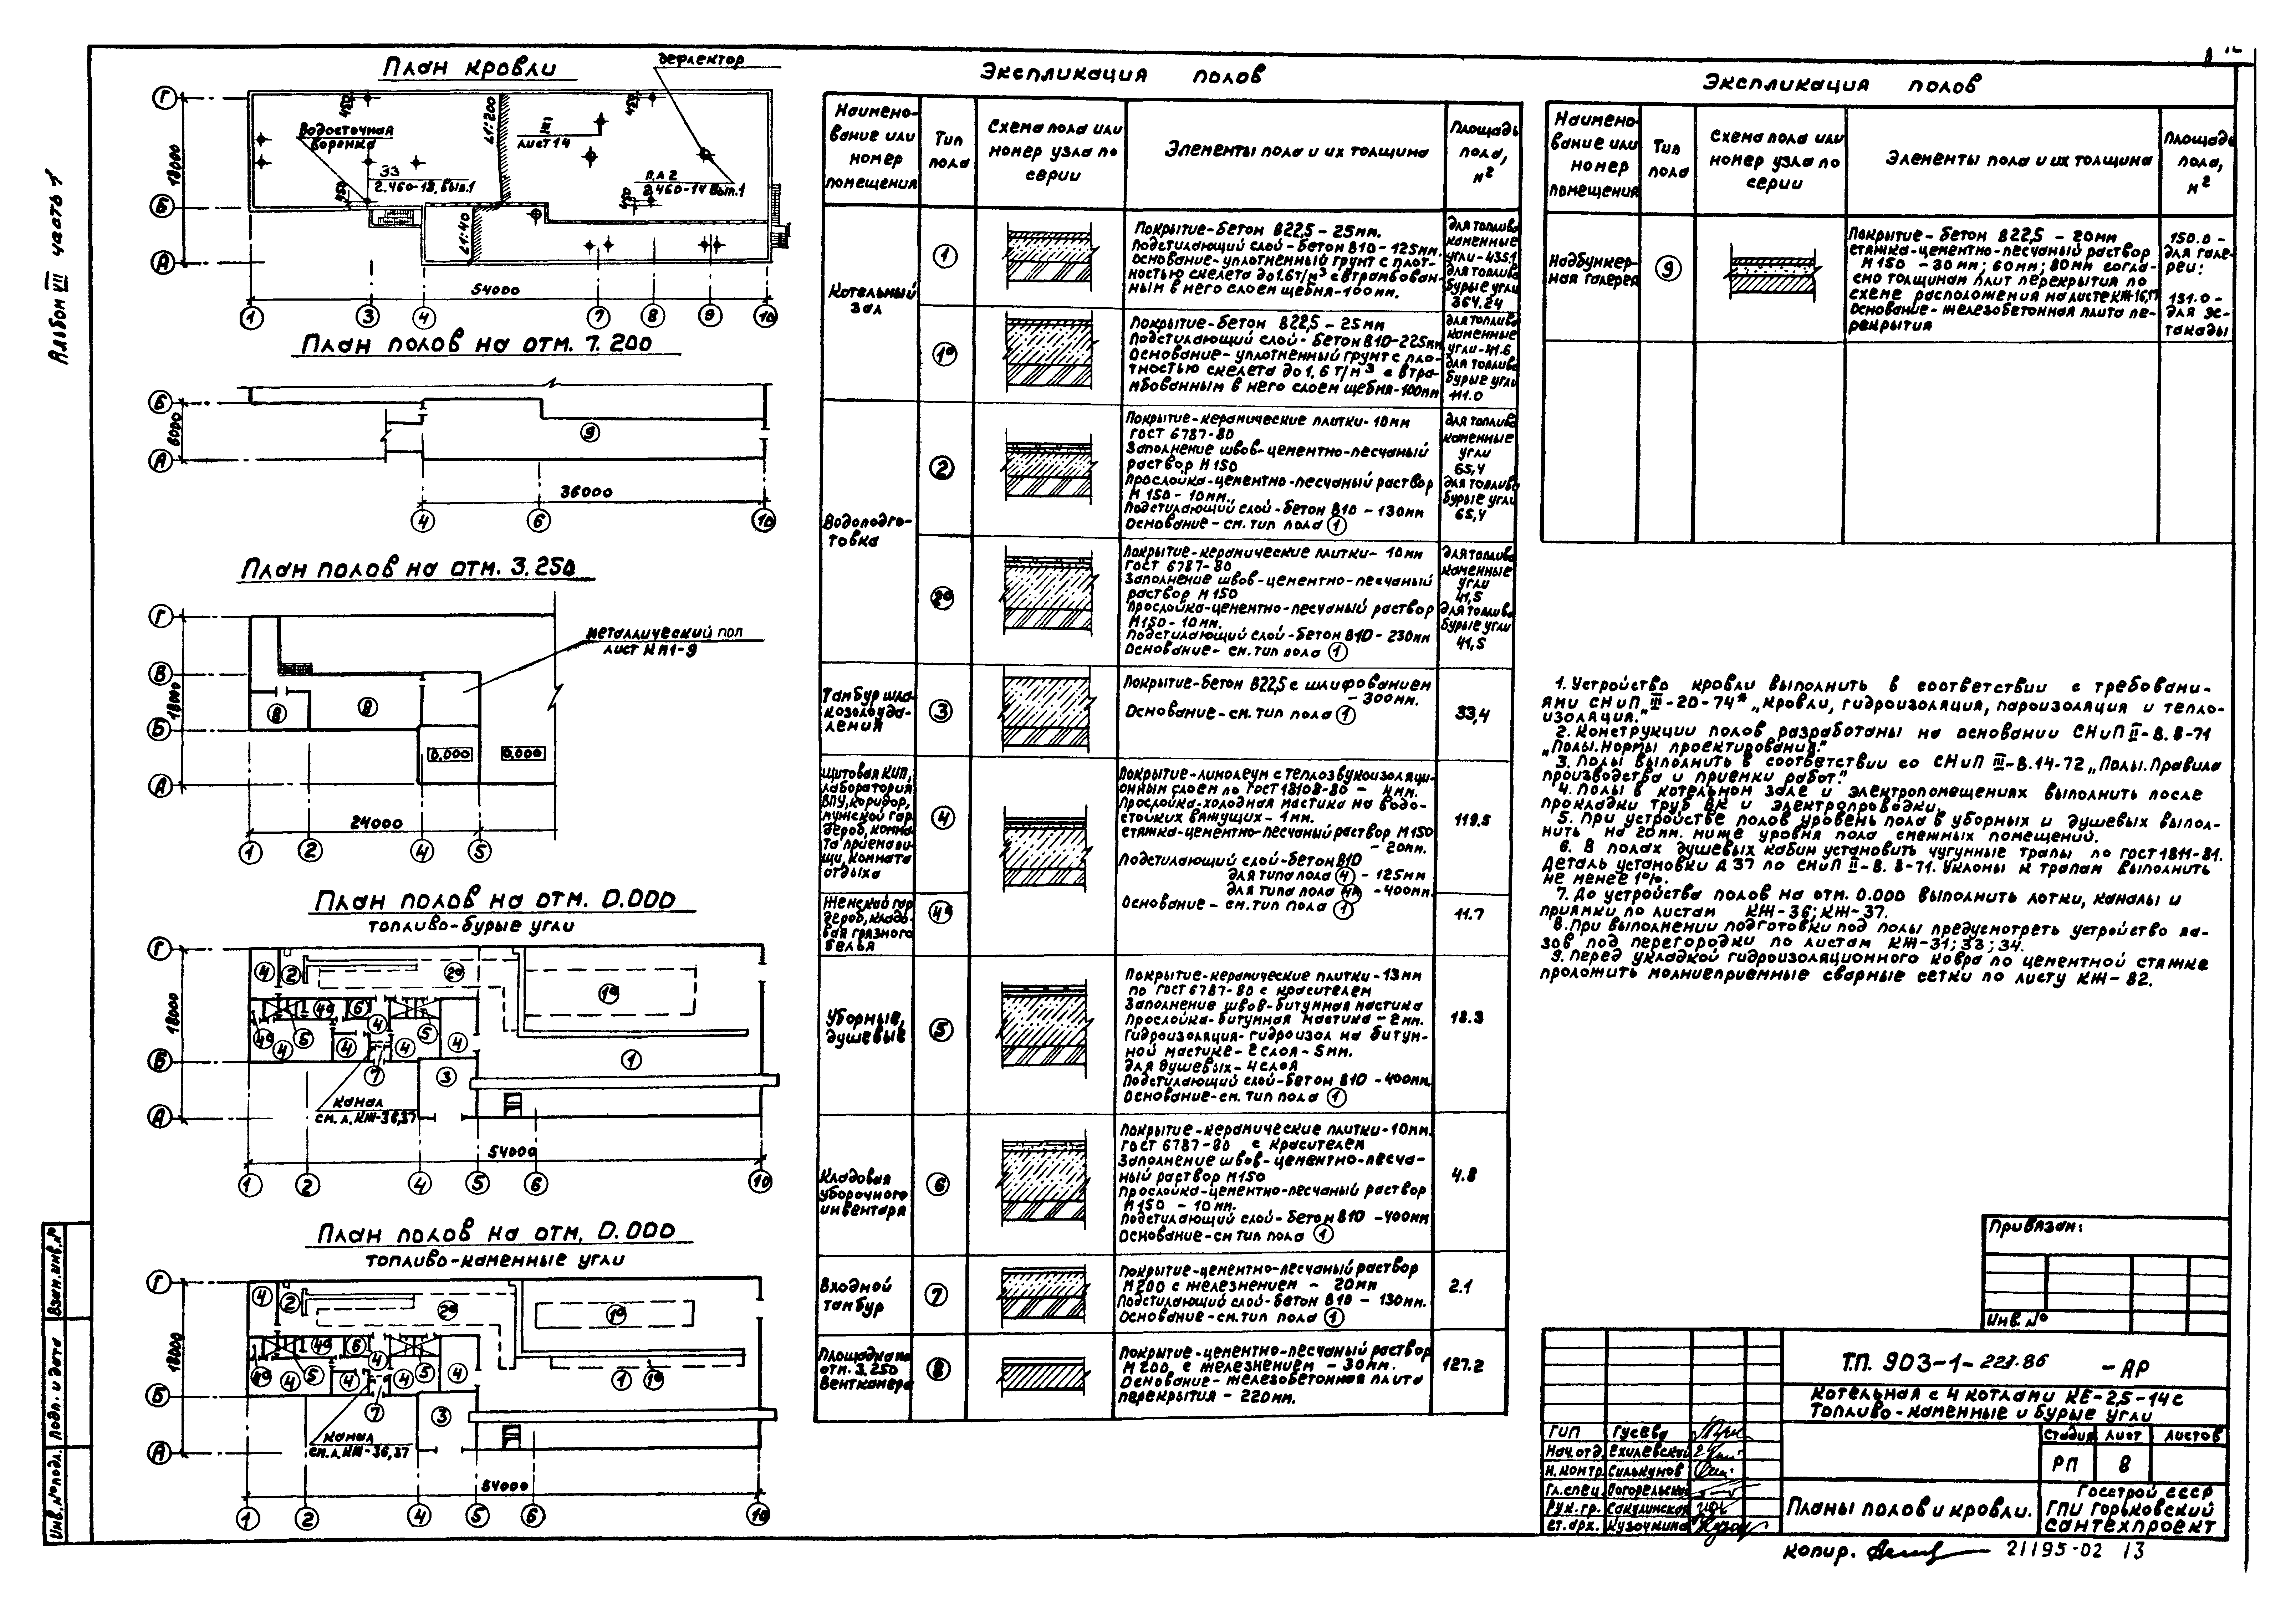 Альбом VII часть 1
План кровли
дефлектор
Г
Б
А
18000
450
450
i 1:200
i 1:40
Водосточная
воронка
III
лист 14
33
2.460-18, вып.1
п.л 2
2.460-14 вып.1
450
54000
1 3 4 7 8 9 10
План полов на отм. 7.200
Б
А
6000
9
36000
4 6 10
План полов на отм. 3.250
Г
В
Б
А
18000
металлический пол
лист КМ1-9
8 8
0.000 0.000
24000
1 2 4 5
План полов на отм. 0.000
топливо-бурые угли
Г
Б
А
18000
4 2 2а 1а
4а 6 4 5 4
4а 4 5 4 4
7 3 1
канал
см.л. КЖ-36,37
54000
1 2 4 5 6 10
План полов на отм. 0.000
топливо-каменные угли
Г
Б
А
18000
4 2 2а 1а
4а 6 4 5 4
4а 4 5 4 4 1 1а
7 3
канал
см.л. КЖ-36,37
54000
1 2 4 5 6 10
Экспликация полов
Наимено-
вание или
номер
помещения
Тип
пола
Схема пола или
номер узла по
серии
Элементы пола и их толщина
Площадь
пола,
м²
Котельный
зал
1
Покрытие-бетон В22,5 - 25мм.
Подстилающий слой-бетон В10-125мм.
Основание-уплотненный грунт с плот-
ностью скелета до 1.6т/м³ с втрамбован-
ным в него слоем щебня-100мм.
для топлива
каменные
угли-435.1
для топлива
бурые угли
364.24
1а
Покрытие-бетон В22,5 - 25мм
Подстилающий слой-бетон В10-225мм
Основание-уплотненный грунт с пло-
тностью скелета до 1,6 т/м³ с втра-
мбованным в него слоем щебня-100мм
для топлива
каменные
угли-41.6
для топлива
бурые угли
111.0
Водоподго-
товка
2
Покрытие-керамические плитки-10мм
ГОСТ 6787-80
Заполнение швов-цементно-песчаный
раствор М150
Прослойка-цементно-песчаный раствор
М150-10мм.
Подстилающий слой-бетон В10 - 130мм
Основание-см. тип пола 1
для топлива
каменные
угли
65,4
для топлива
бурые угли
65,4
2а
Покрытие-керамические плитки- 10мм
ГОСТ 6787-80
Заполнение швов-цементно-песчаный
раствор М150
Прослойка-цементно-песчаный раствор
М150-10мм.
Подстилающий слой-бетон В10-230мм
Основание- см. тип пола 1
для топлива
каменные
угли
41,5
для топлива
бурые угли
41,5
Тамбур шла-
козолоуда-
ления
3
Покрытие-бетон В22,5 с шлифованием
- 300мм.
Основание-см. тип пола 1
33,4
Щитовая КИП,
лаборатория
ВПУ, коридор,
мужской гар-
дероб, комна-
та приема пи-
щи, комната
отдыха
4
Покрытие-линолеум с теплозвукоизоляци-
онным слоем по ГОСТ 18108-80 - 4мм.
Прослойка-холодная мастика на водо-
стойких вяжущих - 1мм.
стяжка-цементно-песчаный раствор М150
- 20мм.
Подстилающий слой-бетон В10
для типа пола 4 - 125мм
для типа пола 4а - 400мм.
Основание - см. тип пола 1
119.5
Женский гар-
дероб, кладо-
вая грязного
белья
4а
11.7
Уборные,
душевые
5
Покрытие-керамические плитки-13мм
по ГОСТ 6787-80 с красителем
Заполнение швов-битумная мастика
Прослойка-битумная мастика-2мм.
гидроизоляция-гидроизол на битум-
ной мастике-2 слоя-5мм.
для душевых-4 слоя
Подстилающий слой-бетон В10 -400мм.
Основание-см. тип пола 1
18.3
Кладовая
уборочного
инвентаря
6
Покрытие-керамические плитки-10мм.
ГОСТ 6787-80 с красителем
Заполнение швов-цементно-песча-
ный раствор М150
Прослойка-цементно-песчаный раствор
М150 - 10мм.
Подстилающий слой-бетон В10 -400мм
Основание-см тип пола 1
4.8
Входной
тамбур
7
Покрытие-цементно-песчаный раствор
М200 с железнением - 20мм
Подстилающий слой-бетон В10 - 130мм.
Основание-см. тип пола 1
2.1
Площадка на
отм. 3.250
Венткамера
8
Покрытие-цементно-песчаный раствор
М200, с железнением - 30мм.
Основание-железобетонная плита
перекрытия - 220мм.
127.2
Экспликация полов
Наимено-
вание или
номер
помещения
Тип
пола
Схема пола или
номер узла по
серии
Элементы пола и их толщина
Площадь
пола,
м²
Надбункер-
ная галерея
9
Покрытие-бетон В22,5 - 20мм
стяжка-цементно-песчаный раствор
М150 - 30мм; 60мм; 80мм согла-
сно толщинам плит перекрытия по
схеме расположения на листе КЖ-16,17
Основание-железобетонная плита пе-
рекрытия
150.0 -
для гале-
реи;
131.0 -
для эс-
такады
1. Устройство кровли выполнить в соответствии с требовани-
ями СНиП III-20-74* „Кровли, гидроизоляция, пароизоляция и тепло-
изоляция."
2. Конструкции полов разработаны на основании СНиП II-В.8-71
„Полы. Нормы проектирования."
3. Полы выполнить в соответствии со СНиП III-В.14-72 „Полы. Правила
производства и приемки работ."
4. Полы в котельном зале и электропомещениях выполнить после
прокладки труб ВК и электропроводки.
5. При устройстве полов уровень пола в уборных и душевых выпол-
нить на 20мм. ниже уровня пола смежных помещений.
6. В полах душевых кабин установить чугунные трапы по ГОСТ 1811-81.
Деталь установки Д 37 по СНиП II-В. 8-71. Уклоны к трапам выполнить
не менее 1%.
7. До устройства полов на отм. 0.000 выполнить лотки, каналы и
приямки по листам КЖ-36; КЖ-37.
8. При выполнении подготовки под полы предусмотреть устройство па-
зов под перегородки по листам КЖ-31; 33; 34.
9. Перед укладкой гидроизоляционного ковра по цементной стяжке
проложить молниеприемные сварные сетки по листу КЖ-82.
Привязан:
Инв. №
Т.П. 903-1-227.86 -АР
Котельная с 4 котлами КЕ-2,5-14с
Топливо-каменные и бурые угли
ГИП Гусева
Нач.отд. Ехилевский
Н.контр. Силькунов
Гл.спец. Погорельская
Рук.гр. Сакулинская
ст.арх. Кузочкина
Стадия Лист Листов
РП 8
Планы полов и кровли.
Госстрой СССР
ГПИ Горьковский
Сантехпроект
копир.
21195-02 13
Инв.№ подл. Подп. и дата Взам.инв.№